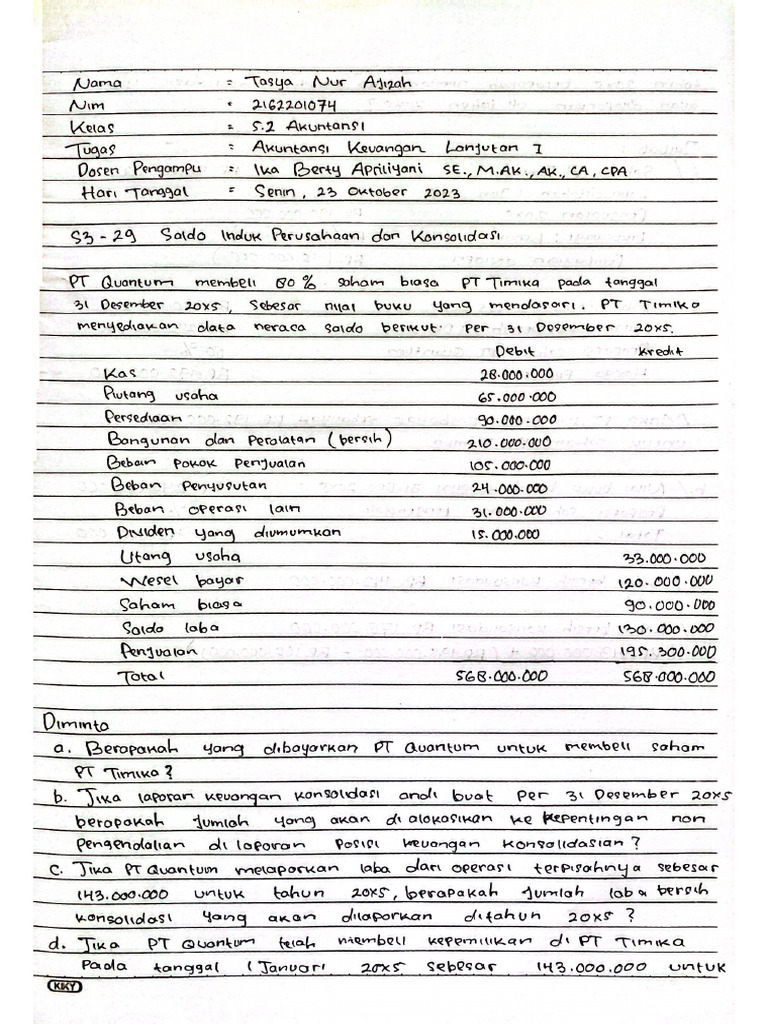 Nama : Tasya Nur Azizah
Nim : 2162201074
Kelas : 5.2 Akuntansi
Tugas : Akuntansi Keuangan Lanjutan I
Dosen Pengampu : Ika Berty Apriliyani SE., M.AK., AK., CA, CPA
Hari Tanggal : Senin, 23 Oktober 2023
S3-29 Saldo Induk Perusahaan dan Konsolidasi
PT Quantum membeli 80% saham biasa PT Timika pada tanggal
31 Desember 20x5, Sebesar nilai buku yang mendasari. PT Timika
menyediakan data neraca saldo berikut per 31 Desember 20x5.
Debit Kredit
Kas 28.000.000
Piutang usaha 65.000.000
Persediaan 90.000.000
Bangunan dan Peralatan (bersih) 210.000.000
Beban Pokok Penjualan 105.000.000
Beban Penyusutan 24.000.000
Beban operasi lain 31.000.000
Dividen yang diumumkan 15.000.000
Utang usaha 33.000.000
Wesel bayar 120.000.000
Saham biasa 90.000.000
Saldo laba 130.000.000
Penjualan 195.300.000
Total 568.000.000 568.000.000
Diminta
a. Berapakah yang dibayarkan PT Quantum untuk membeli saham
PT Timika?
b. Jika laporan keuangan konsolidasi andi buat per 31 Desember 20x5
berapakah Jumlah yang akan di alokasikan ke kepentingan non
Pengendalian di laporan posisi keuangan konsolidasian?
c. Jika PT Quantum melaporkan laba dari operasi terpisahnya sebesar
143.000.000 untuk tahun 20x5, berapakah Jumlah laba bersih
konsolidasi yang akan dilaporkan ditahun 20x5?
d. Jika PT Quantum telah membeli kepemilikan di PT Timika
Pada tanggal 1 Januari 20x5 sebesar 143.000.000 untuk
KIKY